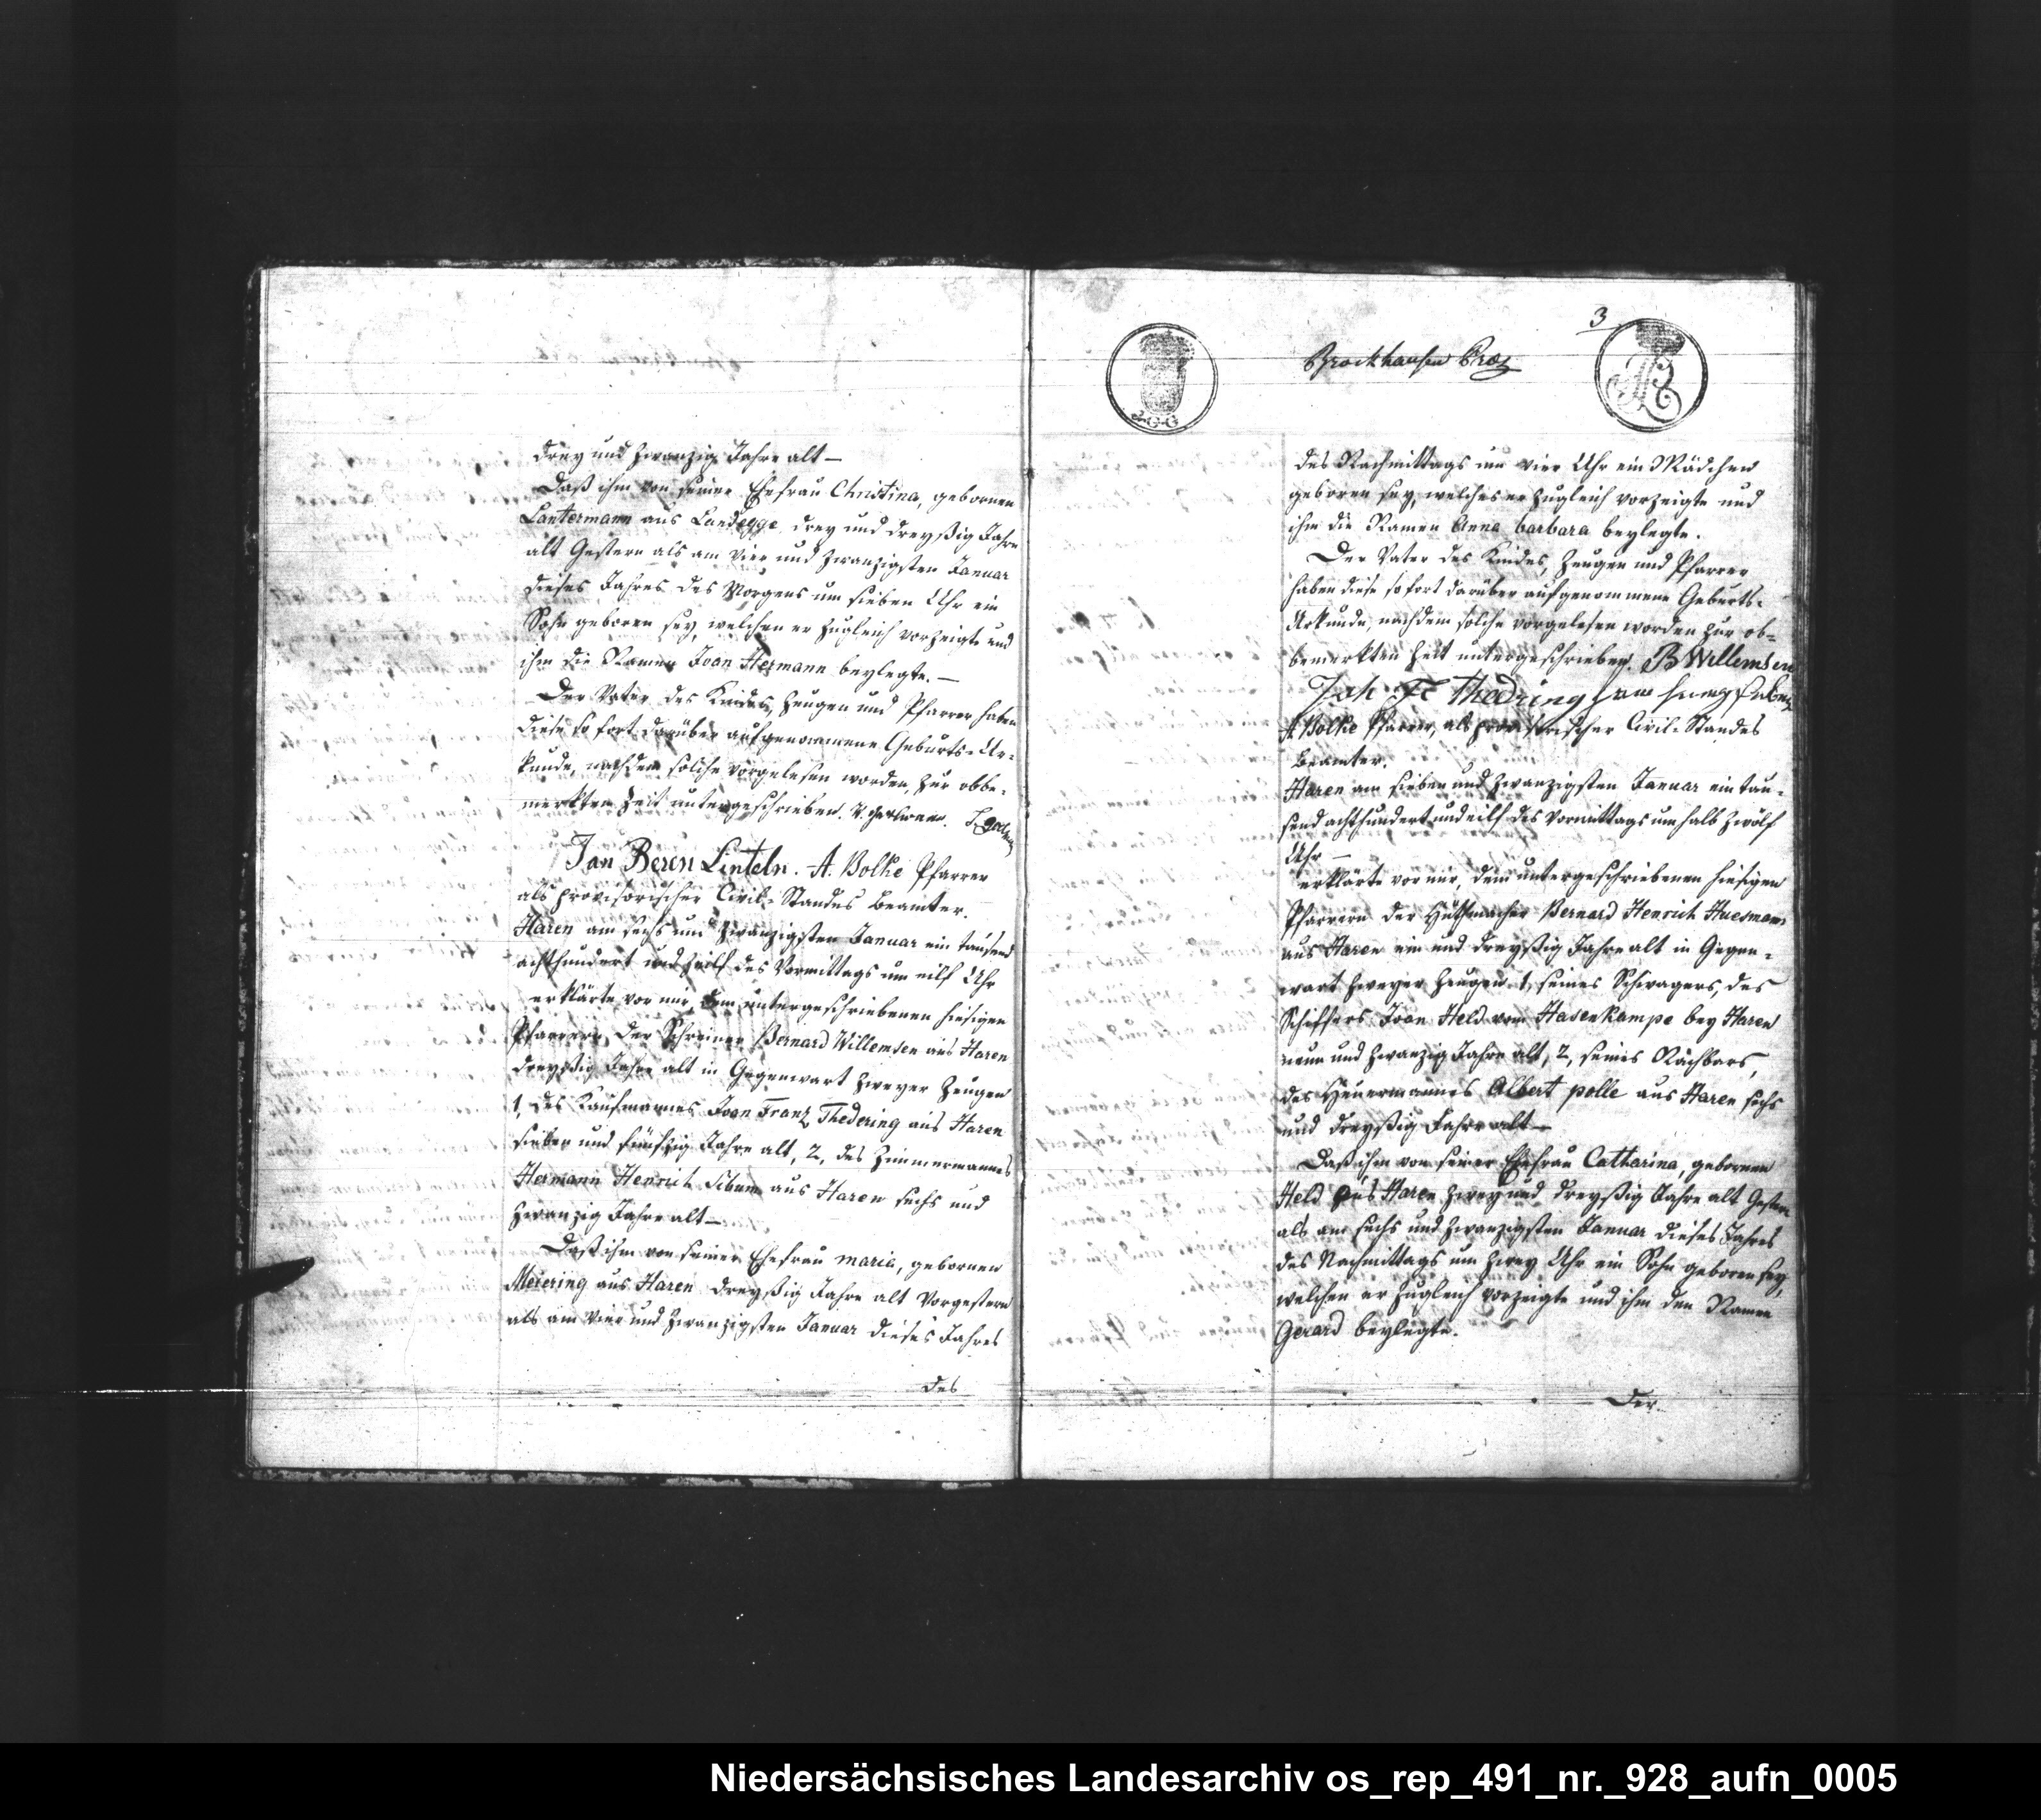 drey und zwanzig Jahre alt —
Daß ihm von seiner Ehefrau Christina, gebornen
Lantermann aus Landegge drey und dreyßig Jahre
alt Gestern als am vier und zwanzigsten Januar
dieses Jahres des Morgens um sieben Uhr ein
Sohn geboren sey, welchen er zugleich vorzeigte und
ihm die Namen Joan Hermann beylegte. —
Der Vater des Kindes, Zeugen und Pfarrer haben
diese so fort darüber aufgenommene Geburts-Ur-
kunde, nachdem solche vorgelesen worden, zur obbe-
merkten Zeit untergeschrieben.
Jan Beren Linteln. A. Bolke Pfarrer
als provisorischer Civil-Standes Beamter.
Haren am sechs und zwanzigsten Januar ein tausend
achthundert und eilf des Vormittags um eilf Uhr
erklärte vor mir, dem untergeschriebenen hiesigen
Pfarrern, der Schreiner Bernard Willemsen aus Haren
dreyßig Jahre alt in Gegenwart zweyer Zeugen
1, des Kaufmannes Joan Franz Thedering aus Haren
sieben und fünfzig Jahre alt, 2, des Zimmermannes
Hermann Henrich Sibum aus Haren sechs und
zwanzig Jahre alt —
Daß ihm von seiner Ehefrau Maria, gebornen
Meiering aus Haren dreyßig Jahre alt Vorgestern
als am vier und zwanzigsten Januar dieses Jahres
des
3
Brockhausen
des Nachmittags um vier Uhr ein Mädchen
geboren sey, welches er zugleich vorzeigte und
ihm die Namen Anna barbara beylegte.
Der Vater des Kindes, Zeugen und Pfarrer
haben diese so fort darüber aufgenommene Geburts-
Urkunde, nachdem solche vorgelesen worden zur ob-
bemerkten Zeit untergeschrieben. B Willemsen
Joh Fr Thedring
A Bolke Pfarrer, als provisorischer Civil-Standes
Beamter.
Haren am sieben und zwanzigsten Januar ein tau-
send achthundert und eilf des Vormittags um halb zwölf
Uhr —
erklärte vor mir, dem untergeschriebenen hiesigen
Pfarrern der Huthmacher Bernard Henrich Huesmann
aus Haren ein und dreyßig Jahre alt in Gegen-
wart zweyer Zeugen 1, seines Schwagers, des
Schiffers Joan Held vom Hasenkampe bey Haren
neun und zwanzig Jahre alt, 2, seines Nachbars,
des Heuermannes Albert polle aus Haren sechs
und dreyßig Jahre alt —
Daß ihm von seiner Ehefrau Catharina, gebornen
Held aus Haren zwey und dreyßig Jahre alt Gestern
als am sechs und zwanzigsten Januar dieses Jahres
des Nachmittags um zwey Uhr ein Sohn geboren sey,
welchen er zugleich vorzeigte und ihm den Namen
Gerard beylegte.
Der
Niedersächsisches Landesarchiv os_rep_491_nr._928_aufn_0005